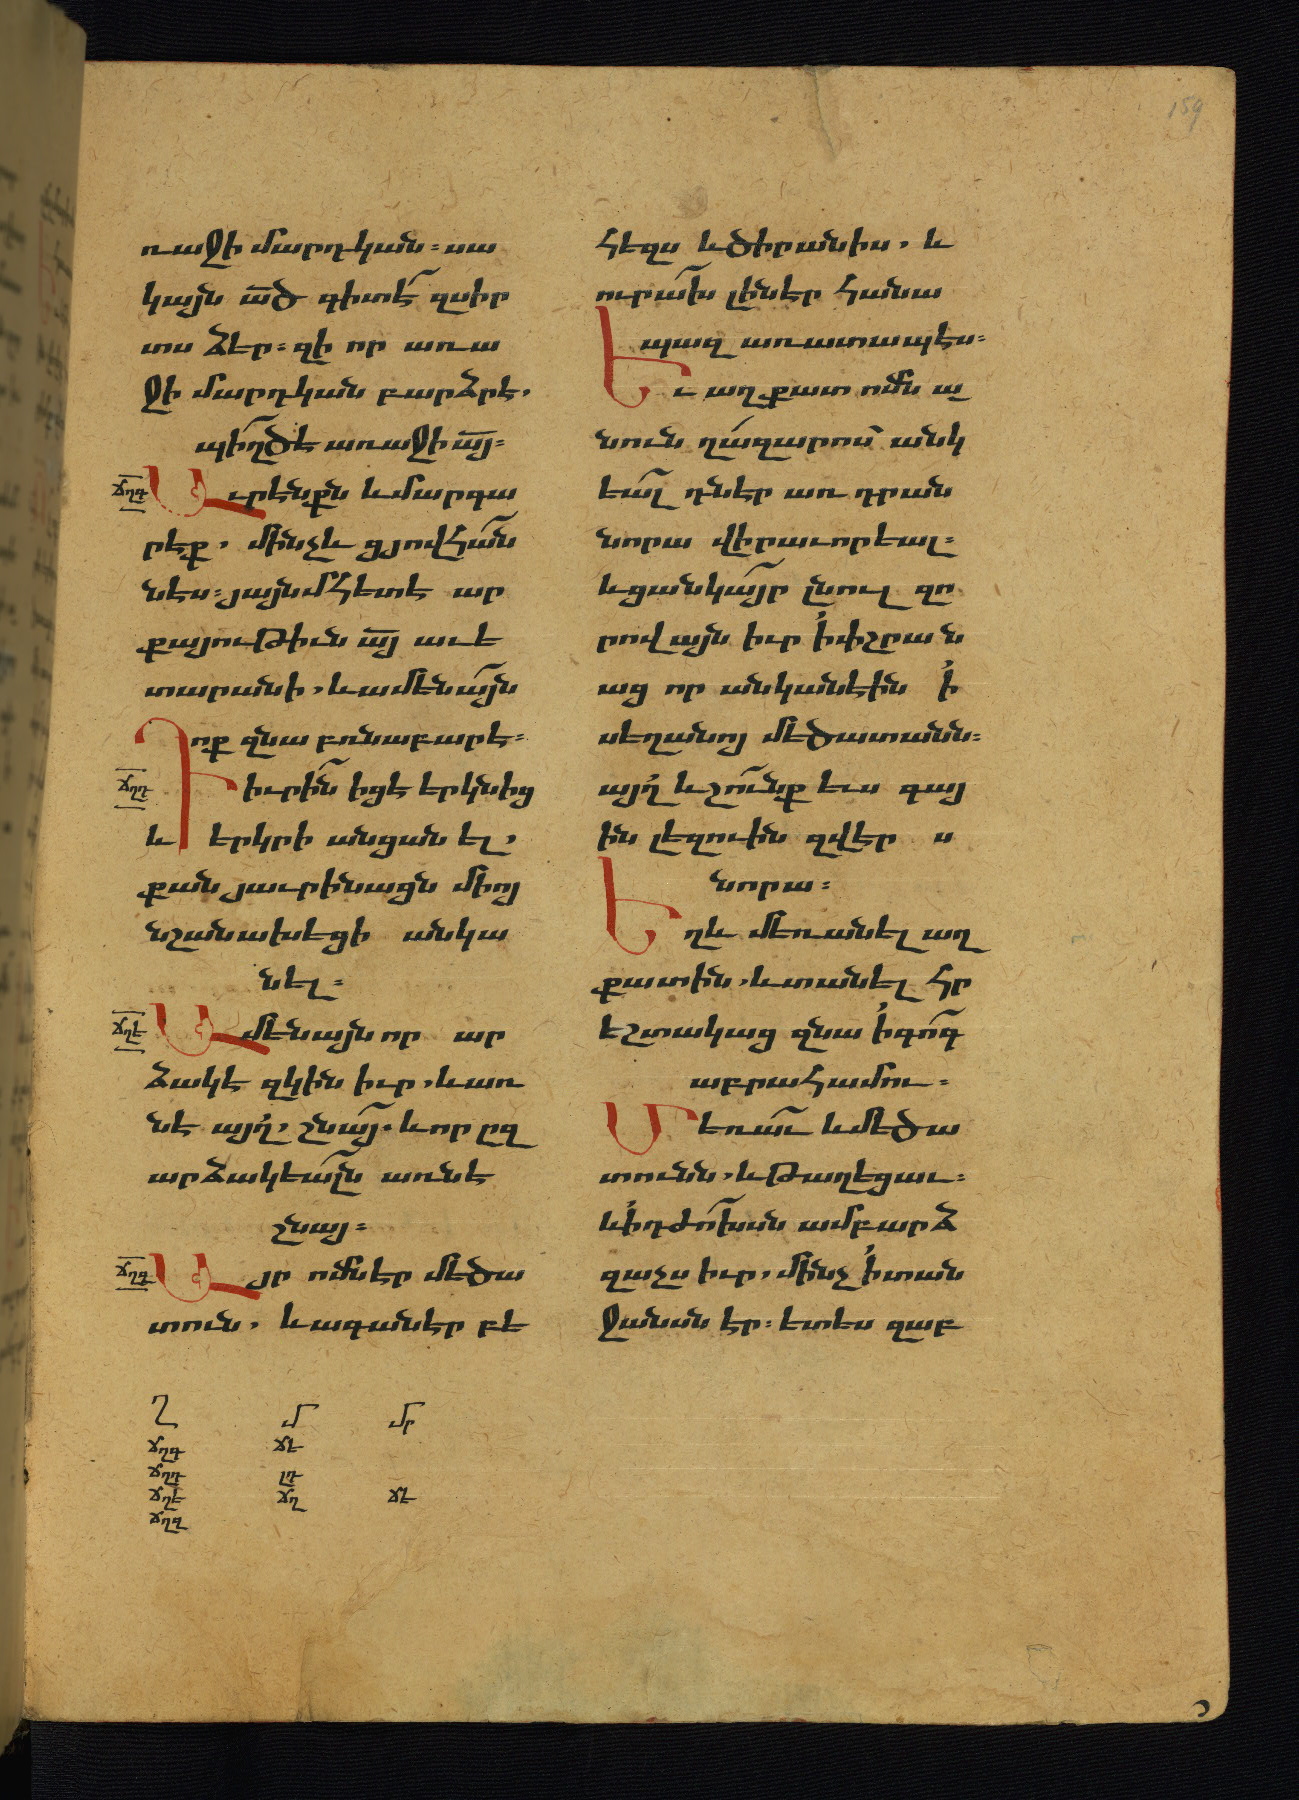 159
ռաջի մարդկան։ սա
կայն ա̅ծ գիտէ զսիր
տս ձեր։ զի որ առա
ջի մարդկան բարձրէ,
պիղծէ առաջի ա̅յ։
ճղգ Աւրէնքն և մարգա
րէք, մինչև ցյովհան
նէս։ յայնմհետէ ար
քայութիւն ա̅յ աւե
տարանի, և ամենայն
ոք զնա բռնաբարէ։
ճղդ Դիւրին իցէ երկնից
և երկրի անցանել,
քան յաւրինացն միոյ
նշանախեցի անկա
նել։
ճղե Ամենայն որ ար
ձակէ զկին իւր, և առ
նէ այլ, շնայ. և որ ըզ
արձակեալն առնէ
շնայ։
ճղզ Այր ոմն էր մեծա
տուն, և ագանէր բե
հեզս և ծիրանիս, և
ուրախ լինէր հանա
պազ առատապէս։
Եւ աղքատ ոմն ա
նուն ղազարոս անկ
եալ դնէր առ դրան
նորա վիրաւորեալ։
և ցանկայր լնուլ զո
րովայն իւր ի փշրան
աց որ անկանէին ի
սեղանոյ մեծատանն։
այլ և շունք ևս գայ
ին լեզուին զվէր ս
նորա։
Եղև մեռանել աղ
քատին, և տանել հր
եշտակաց զնա ի գոգ
աբրահամու։
Մեռաւ և մեծա
տունն, և թաղեցաւ։
և ի դժոխսն ամբարձ
զաչս իւր, մինչ ի տան
ջանսն էր։ ետես զաբ
Ղ Մ Մր
ճղգ ճէ
ճղդ լդ
ճղե ճղ ճէ
ճղզ